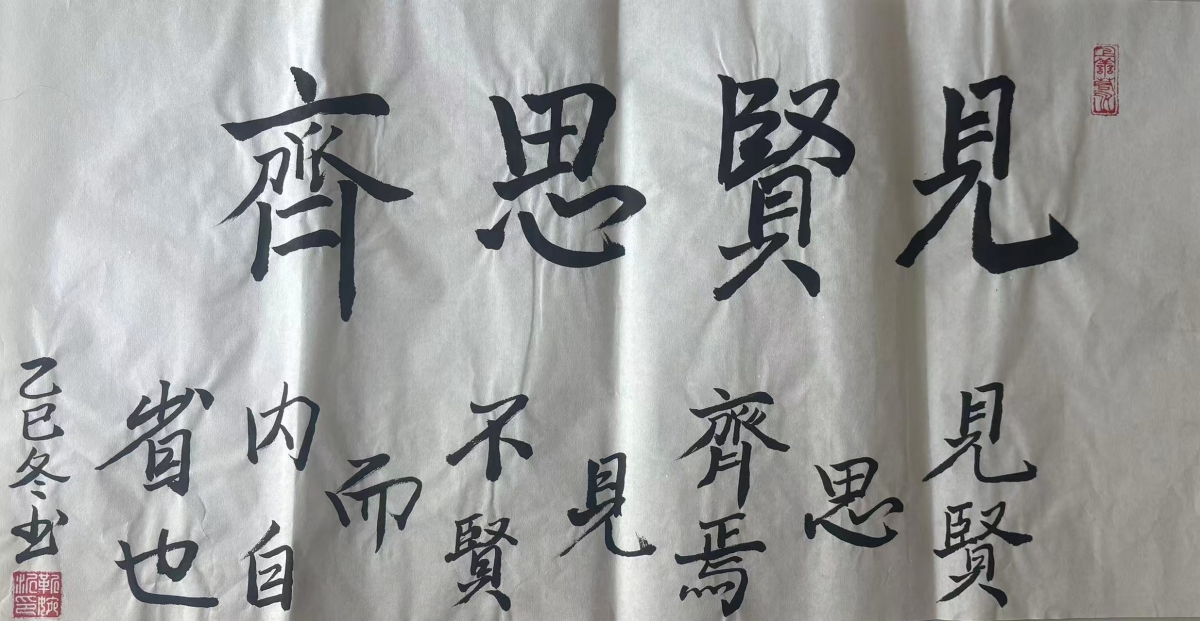 見賢思齊
見賢
思
齊焉
見
不賢
而
内自
省也
乙巳冬书